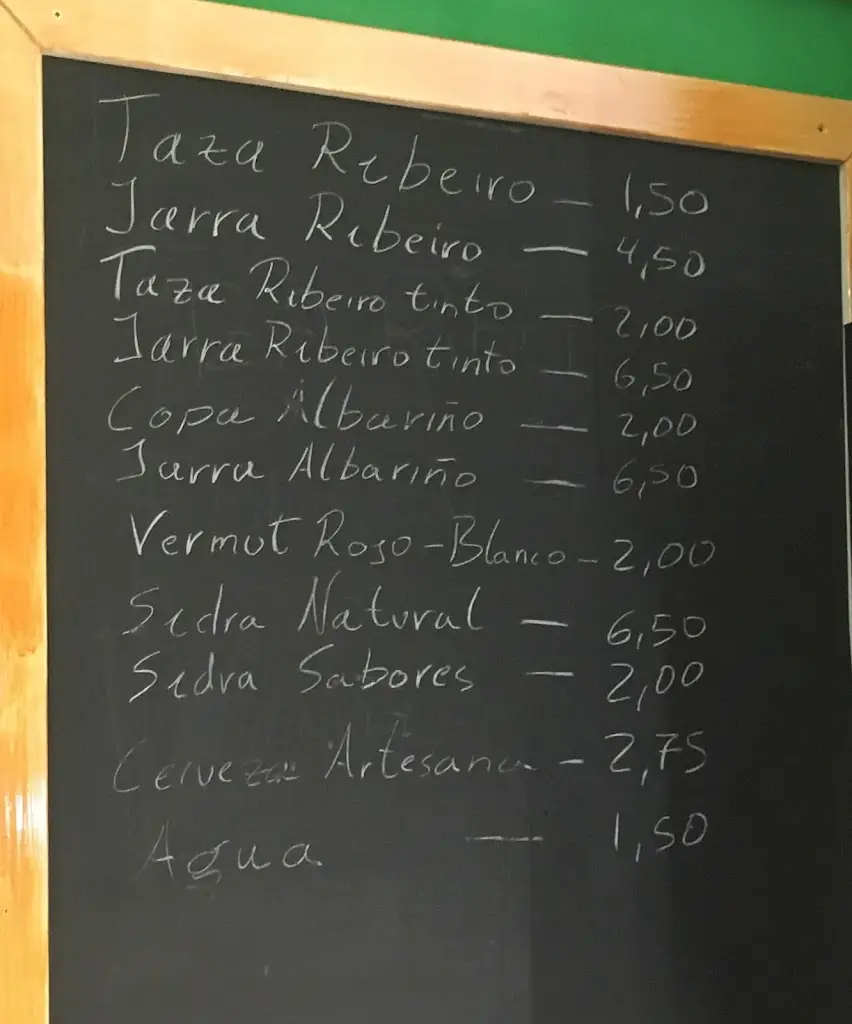 Taza Ribeiro — 1,50
Jarra Ribeiro — 4,50
Taza Ribeiro tinto — 2,00
Jarra Ribeiro tinto — 6,50
Copa Albariño — 2,00
Jarra Albariño — 6,50
Vermut Rojo-Blanco - 2,00
Sidra Natural — 6,50
Sidra Sabores — 2,00
Cerveza Artesana - 2,75
Agua — 1,50